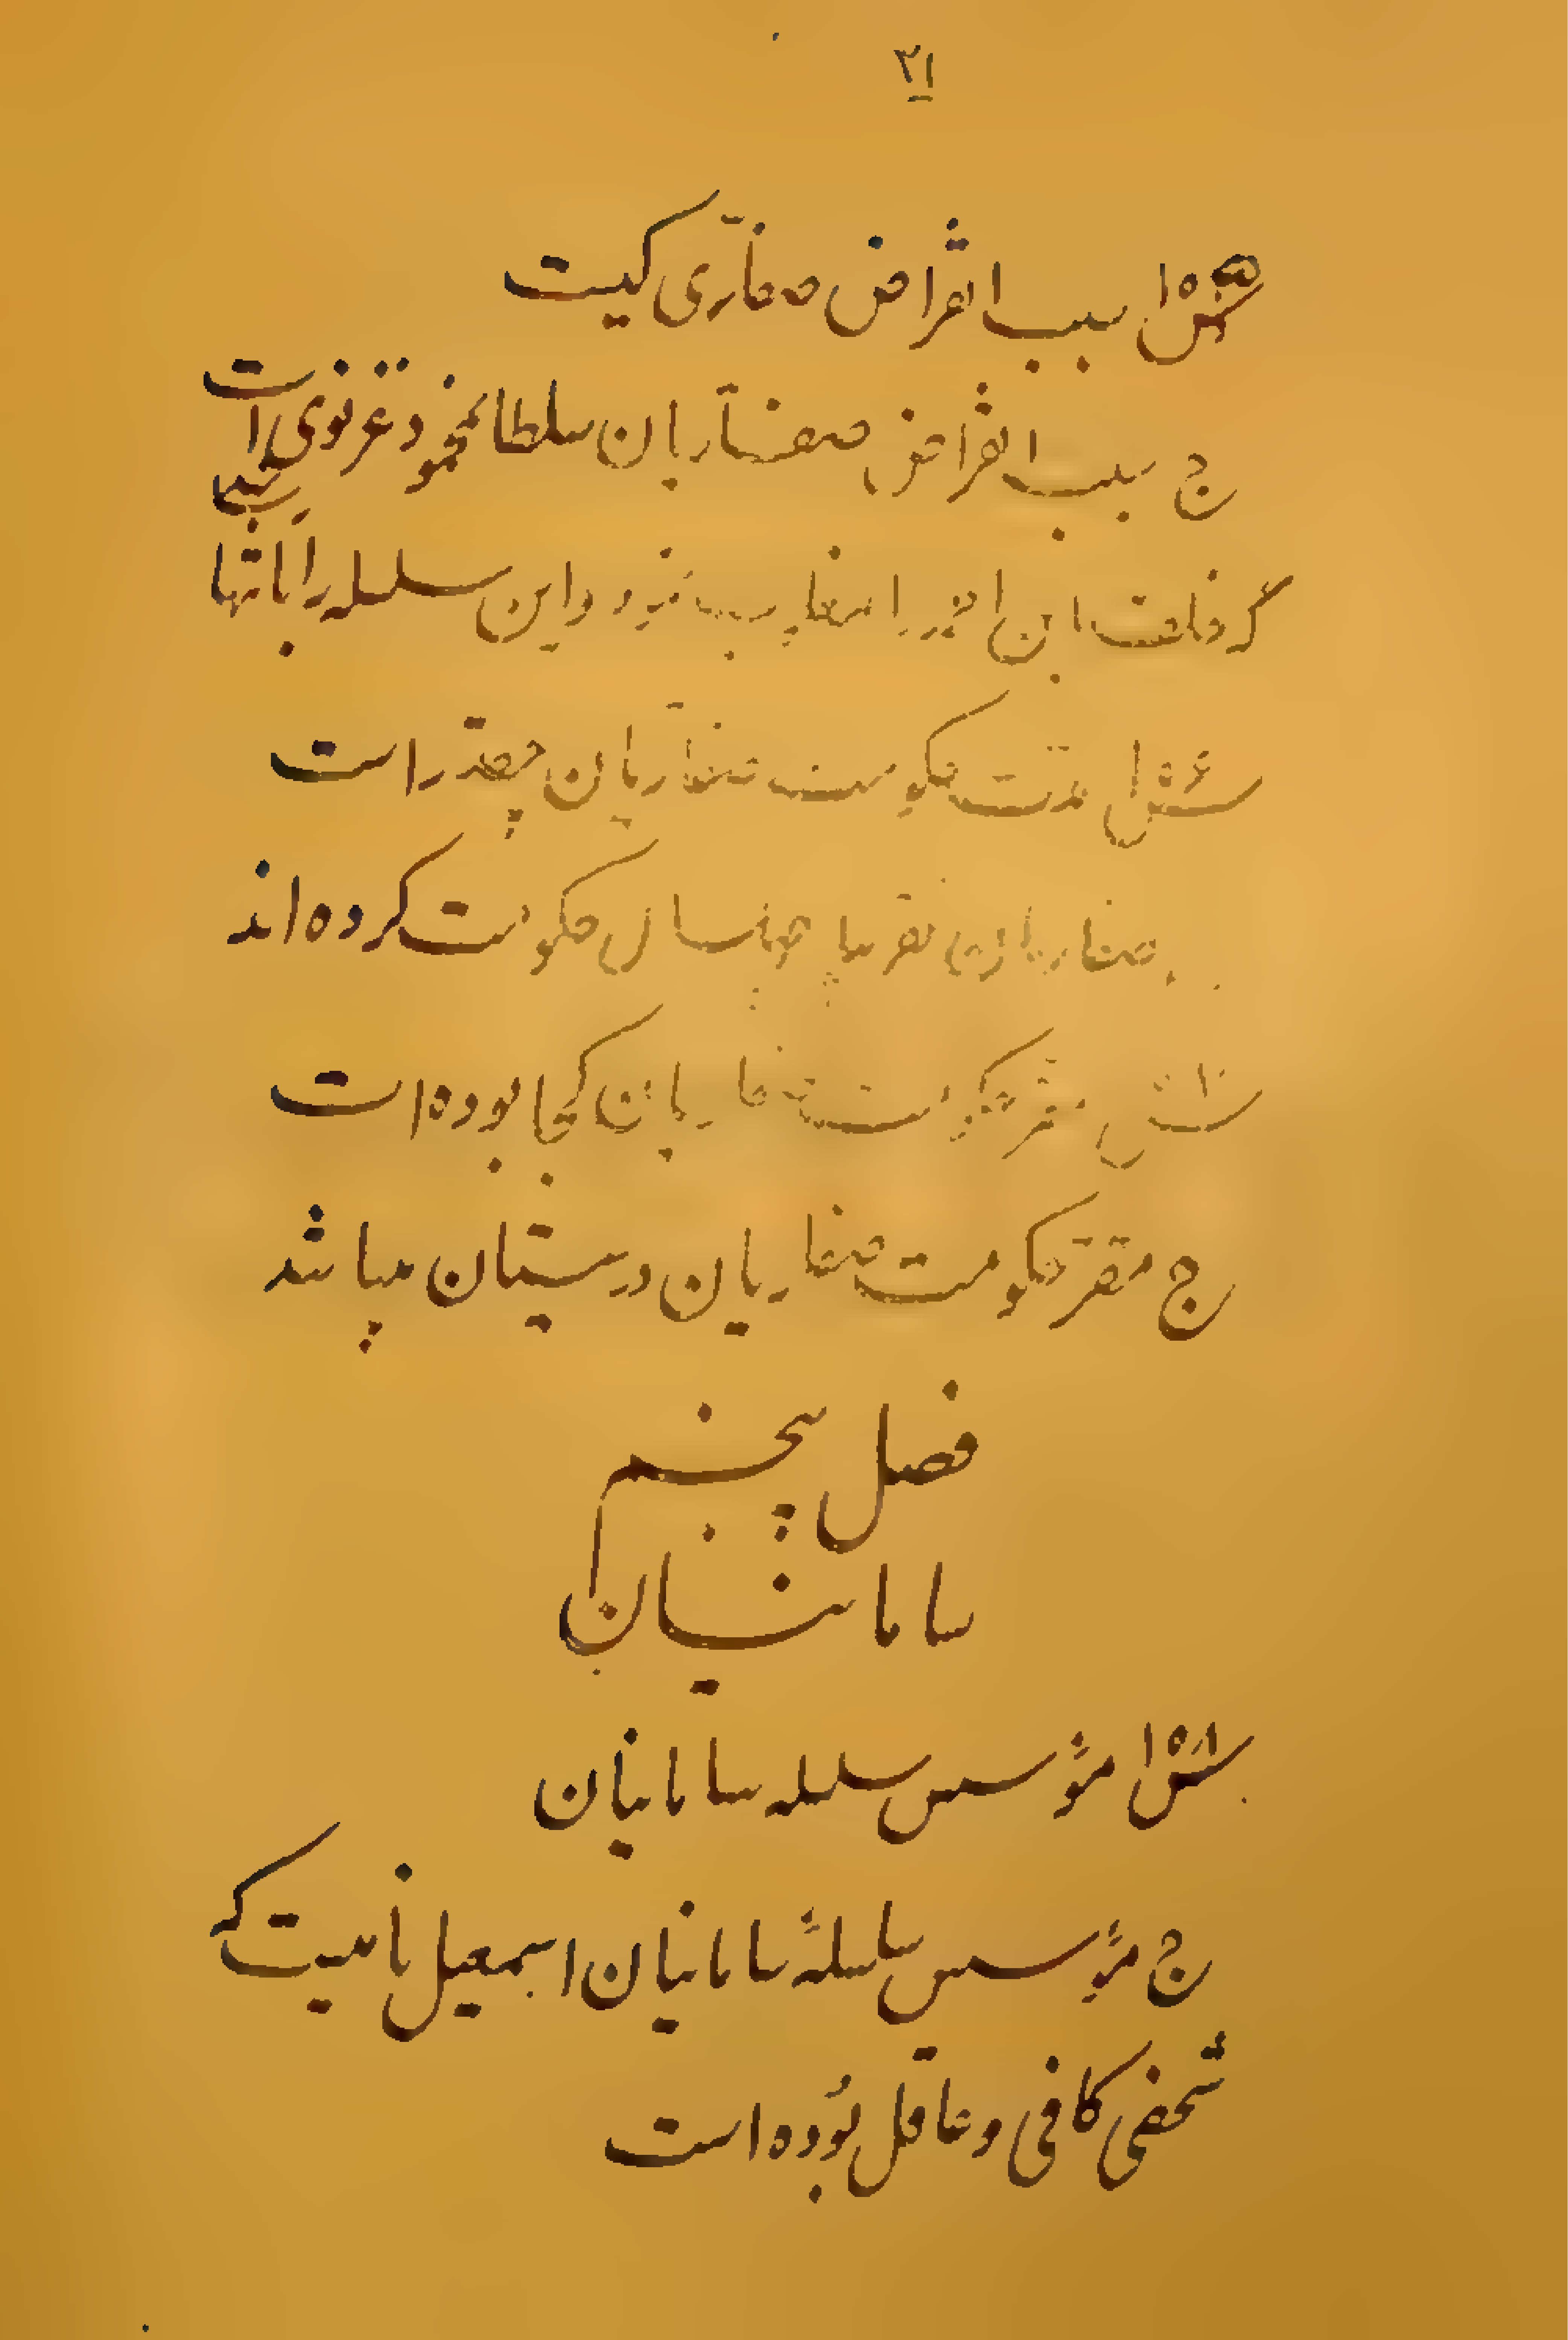 ٣١
س ١٥ سبب انقراض صفاری کیست
ج سبب انقراض صفاریان سلطان محمود غزنوی است
گرفت این امیر را مغلوب نمود و این سلسله را بانتها
س مدت حکومت صفاریان چقدر است
صفاریان تقریبا سال حکومت کرده‌اند
س مقر حکومت صفاریان کجا بوده است
ج مقر حکومت صفاریان در سیستان میباشد
فصل پنجم
سامانیان
س ١ مؤسس سلسله سامانیان
ج مؤسس سلسلهٔ سامانیان اسمعیل نامیست که
شخصی کافی و عاقل بوده است